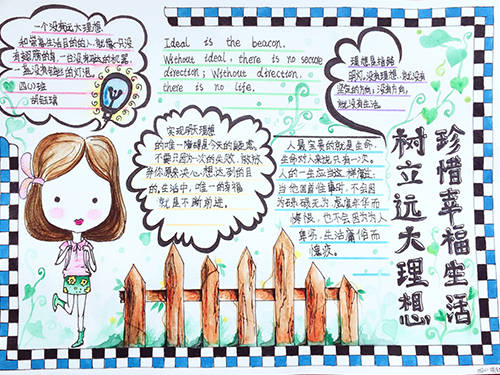 一个没有远大理想
和崇高生活目的的人,就像一只没
有翅膀的鸟,一台没有动力的机器,
一盏没有钨丝的灯泡。
四(1)班
Ideal is the beacon.
Without ideal, there is no secure
direction; Without direction,
there is no life.
理想是指路
明灯。没有理想,就没有
坚定的方向;没有方向,
就没有生活。
实现明天理想
的唯一障碍是今天的疑虑。
不要只因为一次的失败,就放
弃你原来决心想达到的目
的。生活中,唯一的幸福
就是不断前进。
人最宝贵的就是生命。
生命对人来说只有一次。
人的一生应当这样度过:
当他回首往事时,不会因
为碌碌无为,虚度年华而
悔恨,也不会因为为人
卑劣,生活庸俗而
愧疚。
珍惜幸福生活
树立远大理想